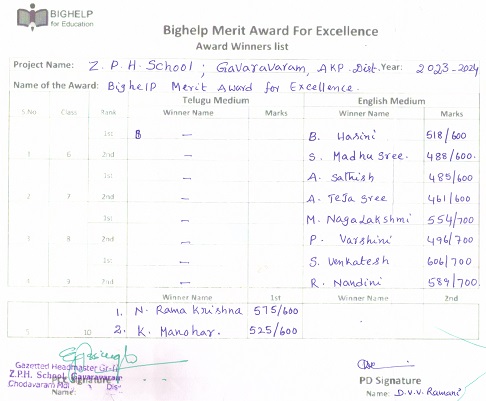 BIGHELP
for Education
Bighelp Merit Award For Excellence
Award Winners list
Project Name: Z.P.H. School ; Gavaravaram, AKP.Dist. Year: 2023-2024
Name of the Award: Bighelp Merit Award for Excellence.
Telugu Medium English Medium
S.No Class Rank Winner Name Marks Winner Name Marks
1st B — B. Hasini 518/600
1 6 2nd — S. Madhu Sree. 488/600.
1st — A. Sathish 485/600
2 7 2nd — A. Teja Sree 461/600
1st — M. Nagalakshmi 554/700
3 8 2nd — P. Varshini 496/700
1st — S. Venkatesh 606/700
4 9 2nd — R. Nandini 589/700.
Winner Name 1st Winner Name 2nd
1. N. Rama Krishna 575/600
5 10 2. K. Manohar. 525/600
Gazetted Headmaster Gr-II
Z.P.H. School, Gavaravaram
Chodavaram Mdl Dist
Signature
Name:
PD Signature
Name: D.V.V. Ramani